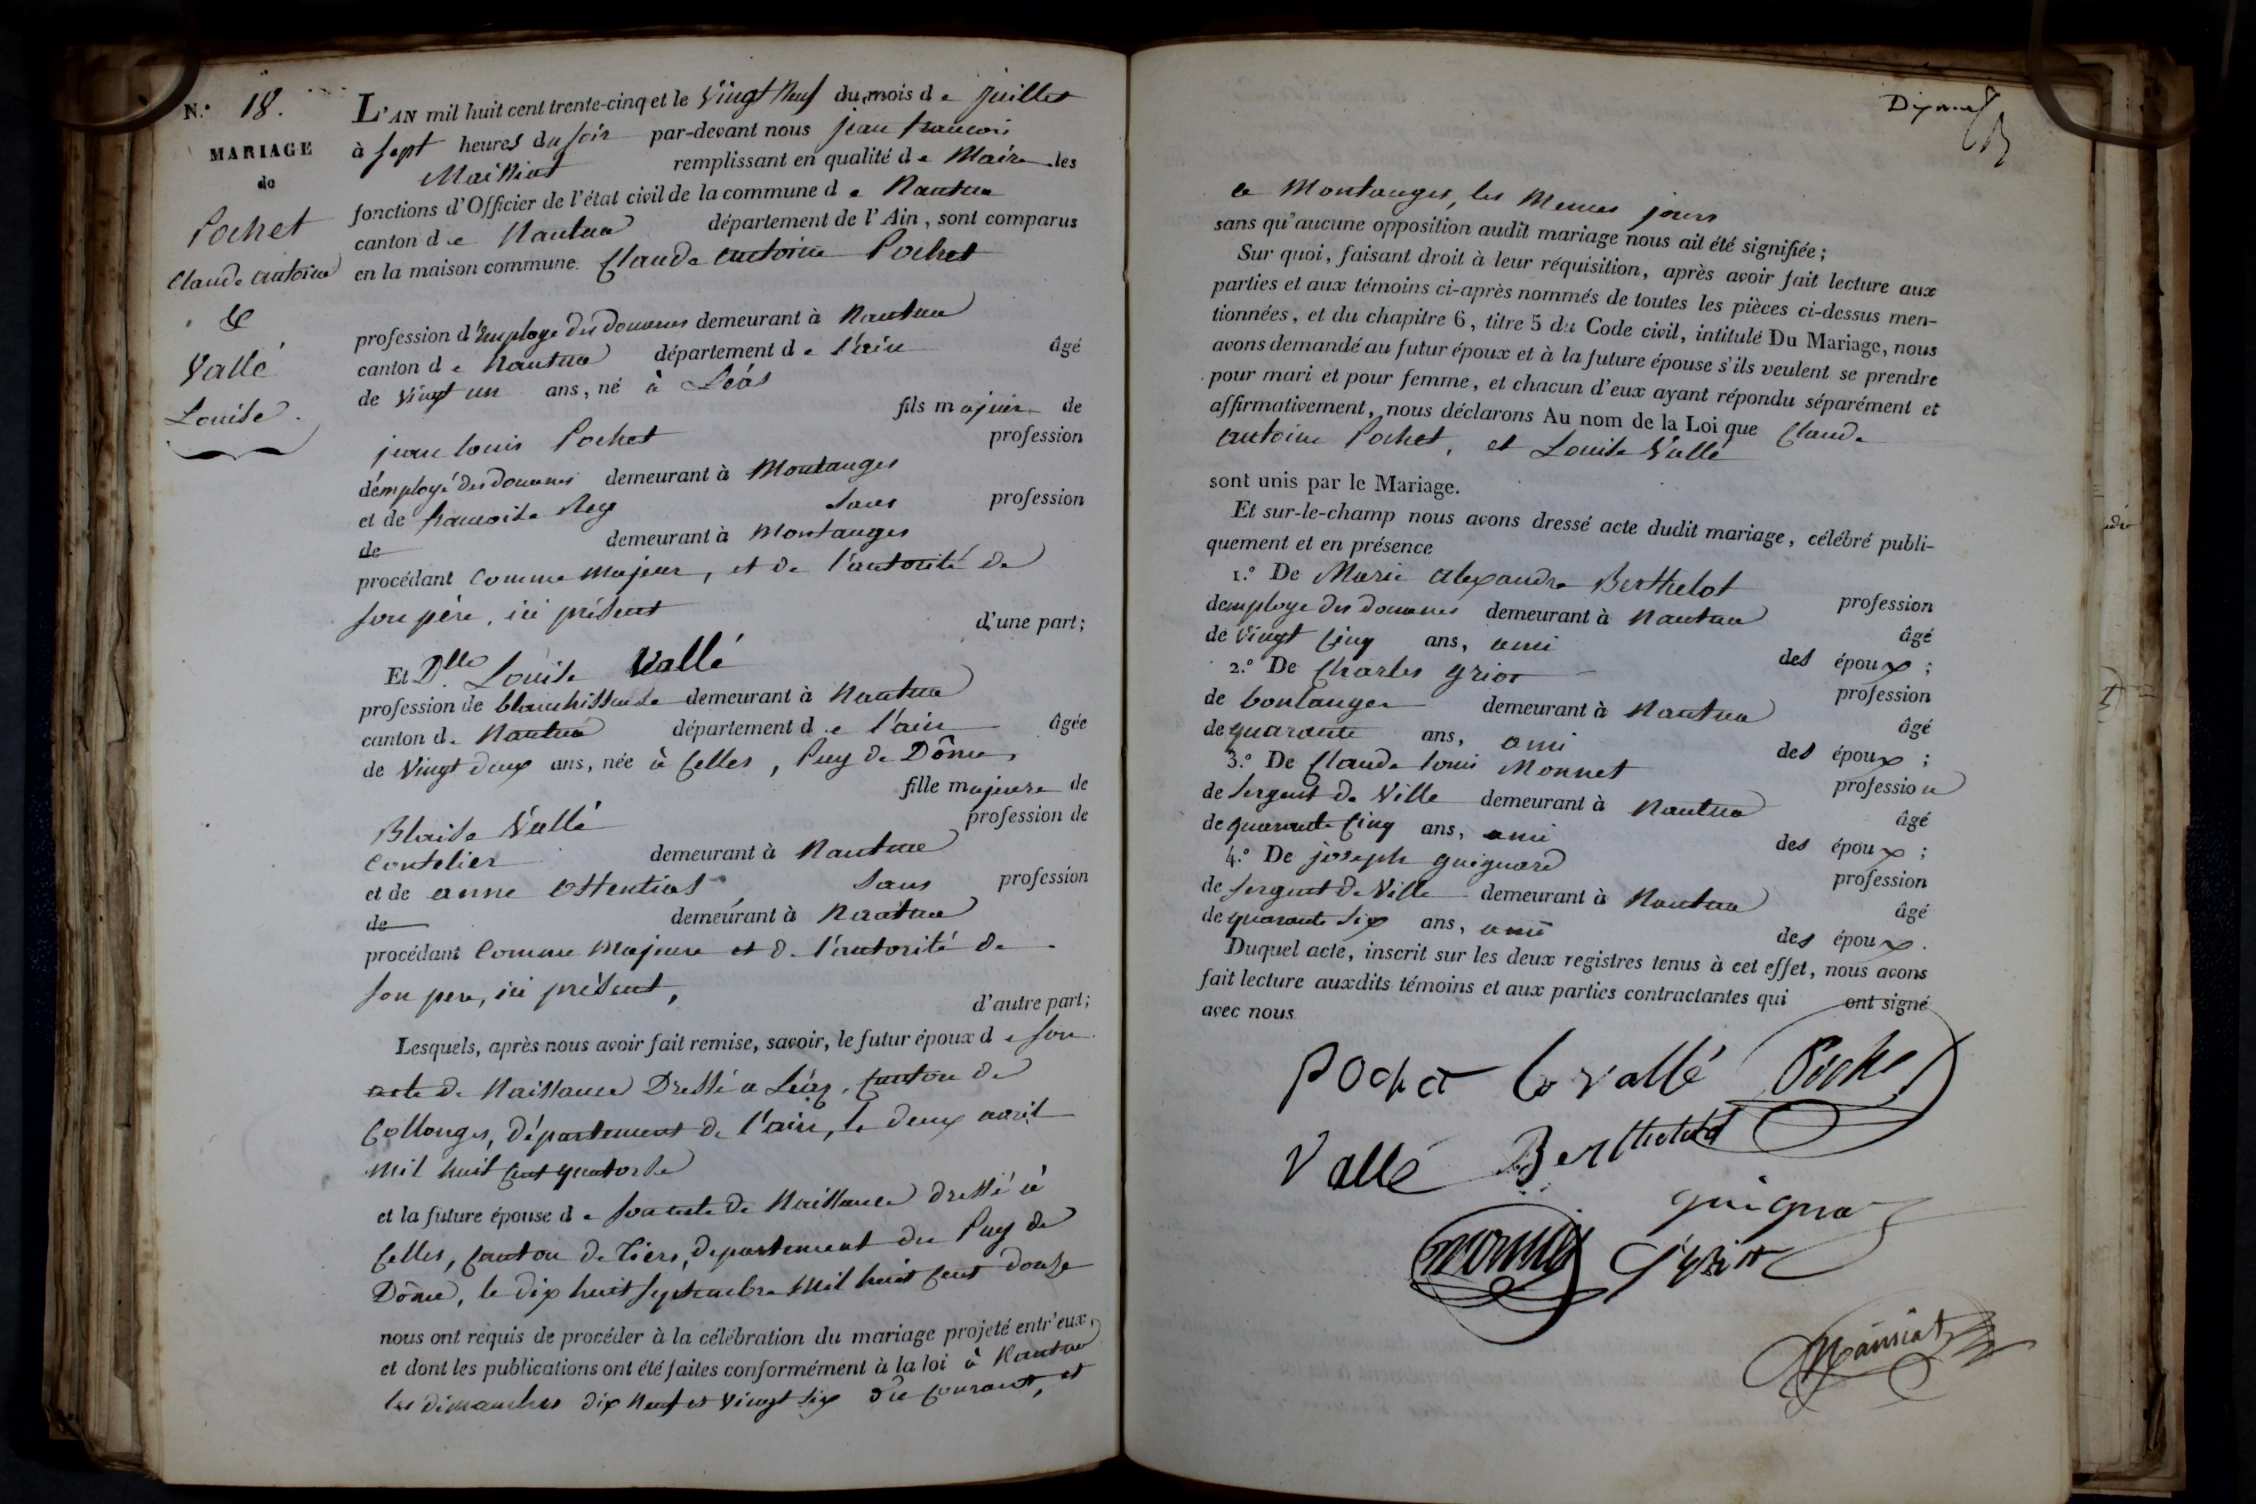 N.° 18.
MARIAGE
de
Pochet
Claude antoine
&
Vallé
Louise.
L'AN mil huit cent trente-cinq et le Vingt Neuf du mois de juillet
à sept heures du soir par-devant nous jean francois
remplissant en qualité de Maire les
fonctions d'Officier de l'état civil de la commune de Nantua
canton de Nantua département de l'Ain, sont comparus
en la maison commune. Claude antoine Pochet
profession d'Employé des douanes demeurant à Nantua
canton de Nantua département de l'ain âgé
de Vingt un ans, né à Léas
fils majeur de
jean louis Pochet profession
d'employé des douanes demeurant à Montanges
et de francoise Rey sans profession
de demeurant à Montanges
procédant Comme Majeur, et de l'autorité de
son père, ici présent d'une part;
Et Dlle Louise Vallé
profession de blanchisseuse demeurant à Nantua
canton de Nantua département de l'ain âgée
de Vingt deux ans, née à Celles, Puy de Dôme,
fille majeure de
Blaise Vallé profession de
Coutelier demeurant à Nantua
et de anne sans profession
de demeurant à Nantua
procédant Comme Majeure et de l'autorité de
son pere, ici présent, d'autre part;
Lesquels, après nous avoir fait remise, savoir, le futur époux de son
acte de Naissance Dressé a Léaz, Canton de
Collonges, département de l'ain, le deux avril
mil huit cent quatorze
et la future épouse de son acte de Naissance dressé à
Celles, Canton de Tiers, departement du Puy de
Dôme, le dix huit septembre Mil huit cent douze
nous ont requis de procéder à la célébration du mariage projeté entr'eux,
et dont les publications ont été faites conformément à la loi à Nantua
les dimanches dix Neuf et Vingt six du courant, et
a Montanges, les Memes jours
sans qu'aucune opposition audit mariage nous ait été signifiée;
Sur quoi, faisant droit à leur réquisition, après avoir fait lecture aux
parties et aux témoins ci-après nommés de toutes les pièces ci-dessus men-
tionnées, et du chapitre 6, titre 5 du Code civil, intitulé Du Mariage, nous
avons demandé au futur époux et à la future épouse s'ils veulent se prendre
pour mari et pour femme, et chacun d'eux ayant répondu séparément et
affirmativement, nous déclarons Au nom de la Loi que Claude
antoine Pochet, et Louise Vallé
sont unis par le Mariage.
Et sur-le-champ nous avons dressé acte dudit mariage, célébré publi-
quement et en présence
1.° De Marie alexandre Berthelot profession
d'employé des douanes demeurant à Nantua âgé
de Vingt Cinq ans, ami des époux;
2.° De Charles griot profession
de boulanger demeurant à Nantua âgé
de quarante ans, ami des époux;
3.° De Claude louis Monnet profession
de sergent de Ville demeurant à Nantua âgé
de quarante Cinq ans, ami des époux;
4.° De joseph guignard profession
de sergent de Ville demeurant à Nantua âgé
de quarante six ans, ami des époux.
Duquel acte, inscrit sur les deux registres tenus à cet effet, nous avons
fait lecture auxdits témoins et aux parties contractantes qui ont signé
avec nous
Vallé